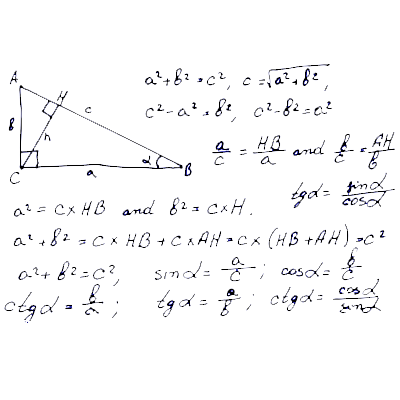 a² + b² = c², c = √a² + b²,
c² - a² = b², c² - b² = a²
A
H
c
b
h
C
a
α
B
a/c = HB/a and b/c = AH/b
tgα = sinα/cosα
a² = c × HB and b² = c × H.
a² + b² = c × HB + c × AH = c × (HB + AH) = c²
a² + b² = c², sinα = a/c; cosα = b/c;
ctgα = b/a; tgα = a/b; ctgα = cosα/sinα